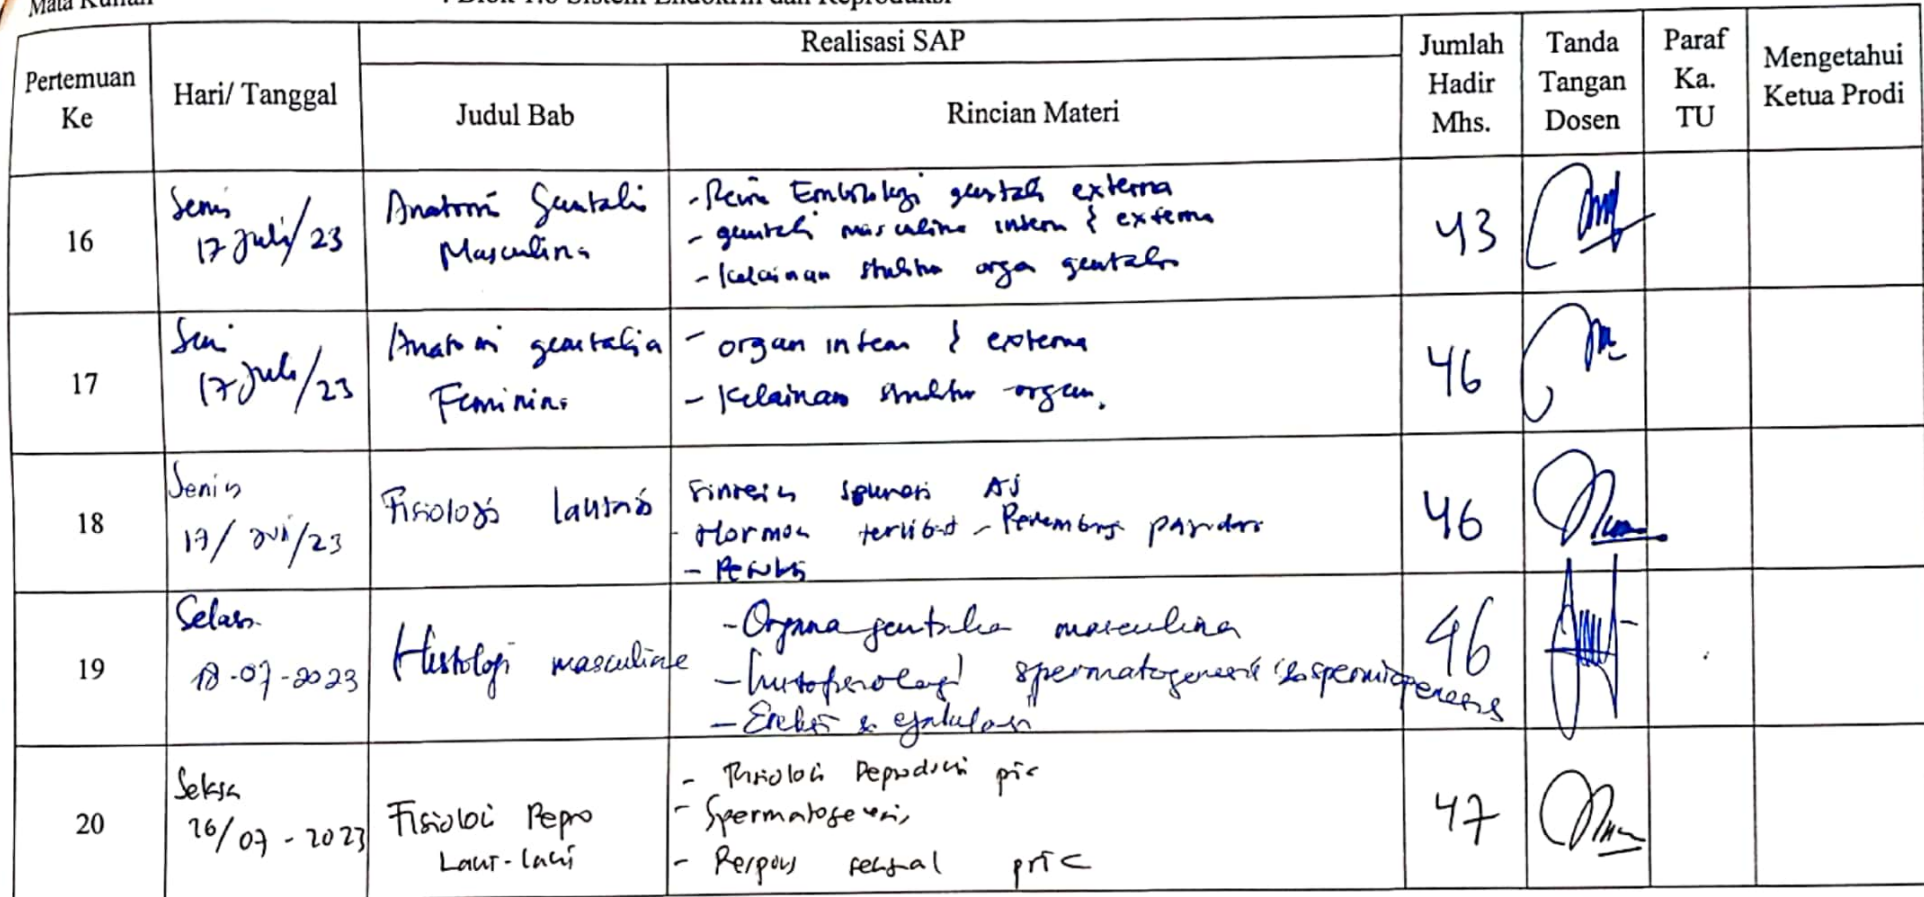 Mata Kuliah : Blok 1.6 Sistem Endokrin dan Reproduksi
Pertemuan Ke
Hari/ Tanggal
Realisasi SAP
Judul Bab
Rincian Materi
Jumlah Hadir Mhs.
Tanda Tangan Dosen
Paraf Ka. TU
Mengetahui Ketua Prodi
16
Senin
17 Juli/23
Anatomi Genitalia
Masculina
- Embriologi genitalia externa
- genitalia masculina intern & externa
- Kelainan struktur organ genitalia
43
17
Senin
17 Juli/23
Anatomi genitalia
Feminina
- organ intern & externa
- Kelainan struktur organ.
46
18
Senin
17/ Juli/23
Fisiologi laktasi
- Hormon terlibat -
46
19
Selasa
18-07-2023
Histologi masculine
- Organa genitalia masculina
- histofisiologi spermatogenesis & spermiogenesis
- Ereksi & ejakulasi
46
20
Selasa
26/07-2023
Fisiologi Repro
Laki-laki
- Fisiologi Reproduksi pria
- Spermatogenesis
- Respons seksual pria
47